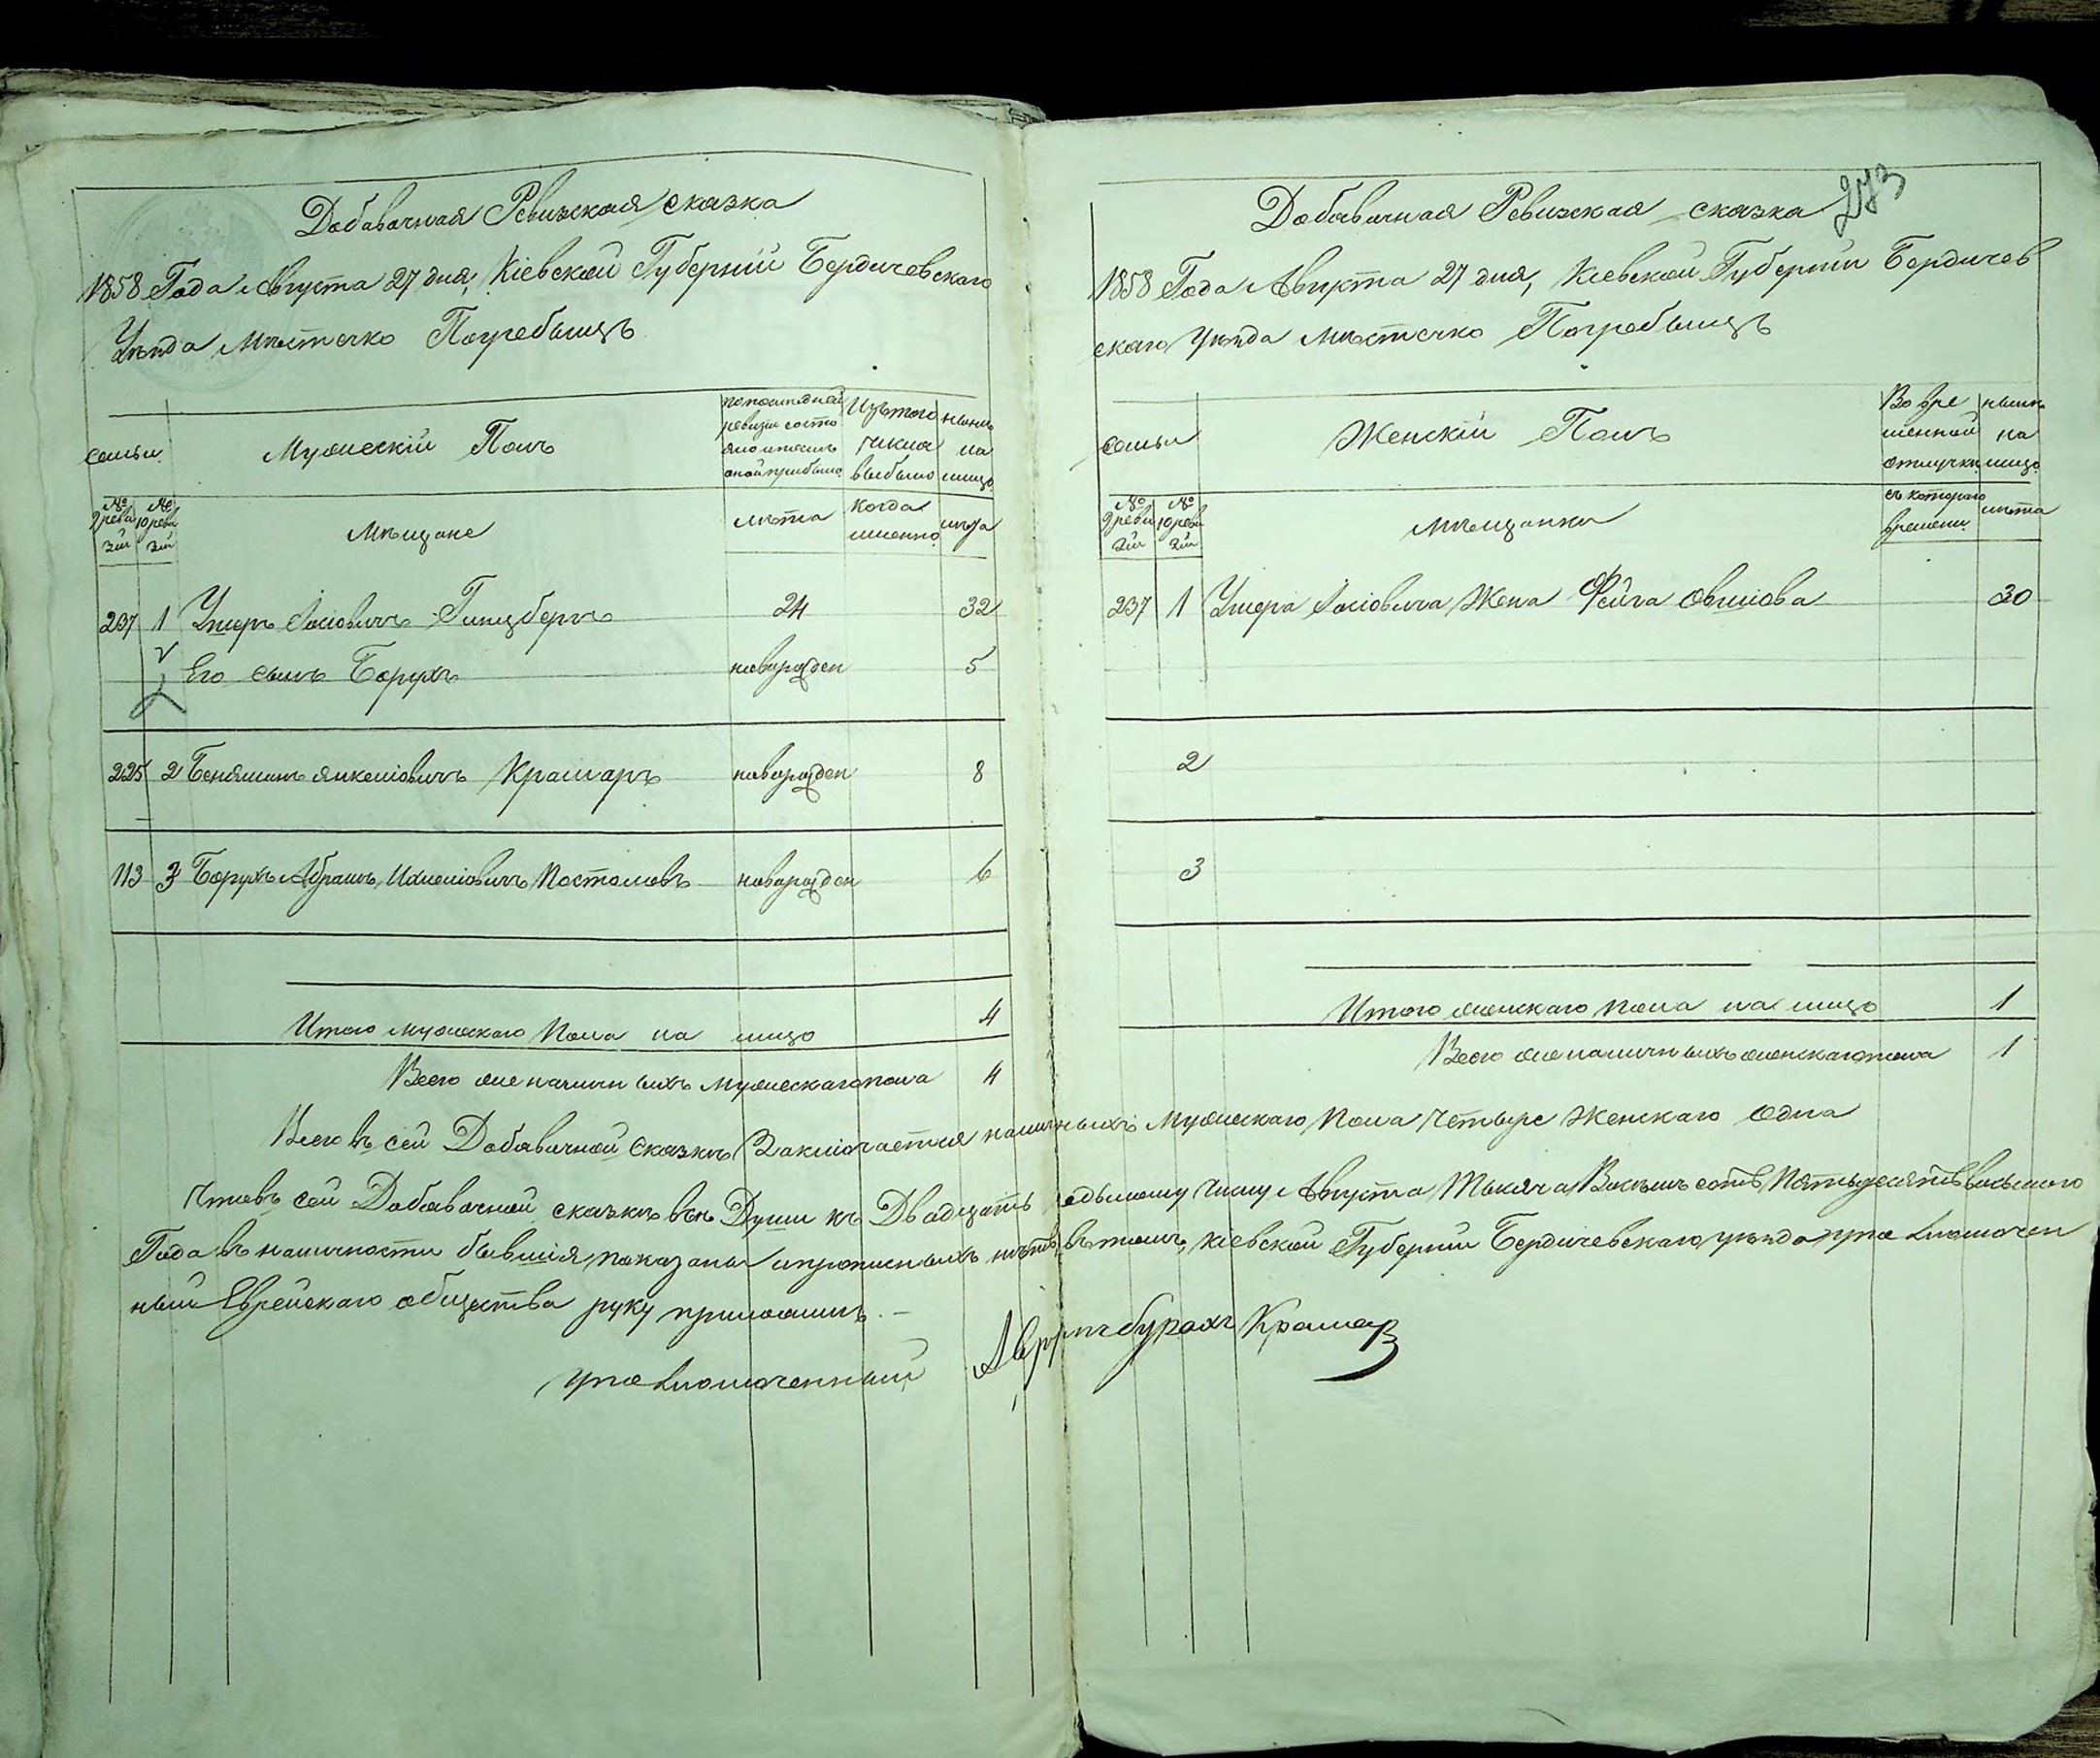 Добавачная Ревизская сказка
1858 Года Августа 27 дня, Кіевской Губерніи Бердичевскаго
Уѣзда Мѣстечко Погребыщъ
семьи
Мужескій Полъ
по последней ревизіи состояло и после оной прибыло
Изътого числа выбыло
нынѣ на лицо
№ 9 ревизіи
№ 10 ревизіи
Мѣщане
лѣта
Когда именно
лѣта
237 1 Ушеръ Іосіовичъ Гинцбергъ 24 32
Его сынъ Борухъ новорожден 5
225 2 Беняминъ Янкеліовичъ Крамаръ новорожден 8
113 3 Борухъ Абрамъ Ихиліовичъ Постоловъ новорожден 6
Итого мужескаго пола на лицо 4
Всего же наличныхъ мужескаго пола 4
273
Добавачная Ревизская сказка
1858 Года Августа 27 дня, Кіевской Губерніи Бердичев
скаго Уѣзда Мѣстечко Погребыщъ
семьи
Женскій Полъ
Во вре менной отлучки
нынѣ на лицо
№ 9 ревизіи
№ 10 ревизіи
Мѣщанки
съ котораго времени
лѣта
237 1 Ушера Іосіовича Жена Фейга Овшіова 30
2
3
Итого женскаго пола на лицо 1
Всего же наличныхъ женскаго пола 1
Всего въ сей Добавачной сказкѣ Заключается наличныхъ Мужескаго Пола Четыре Женскаго Одна
Что въ сей Добавачной сказкѣ всѣ Души къ Двадцать седьмому числу Августа Тысяча Восемь сотъ Пятьдесятъ восьмого
Года въ наличности бывшія, показаны и прописныхъ нѣтъ, въ томъ, Кіевской Губерніи Бердичевскаго уѣзда уполномочен
ный Еврейскаго общества руку приложилъ. –
Уполномоченный Крамар